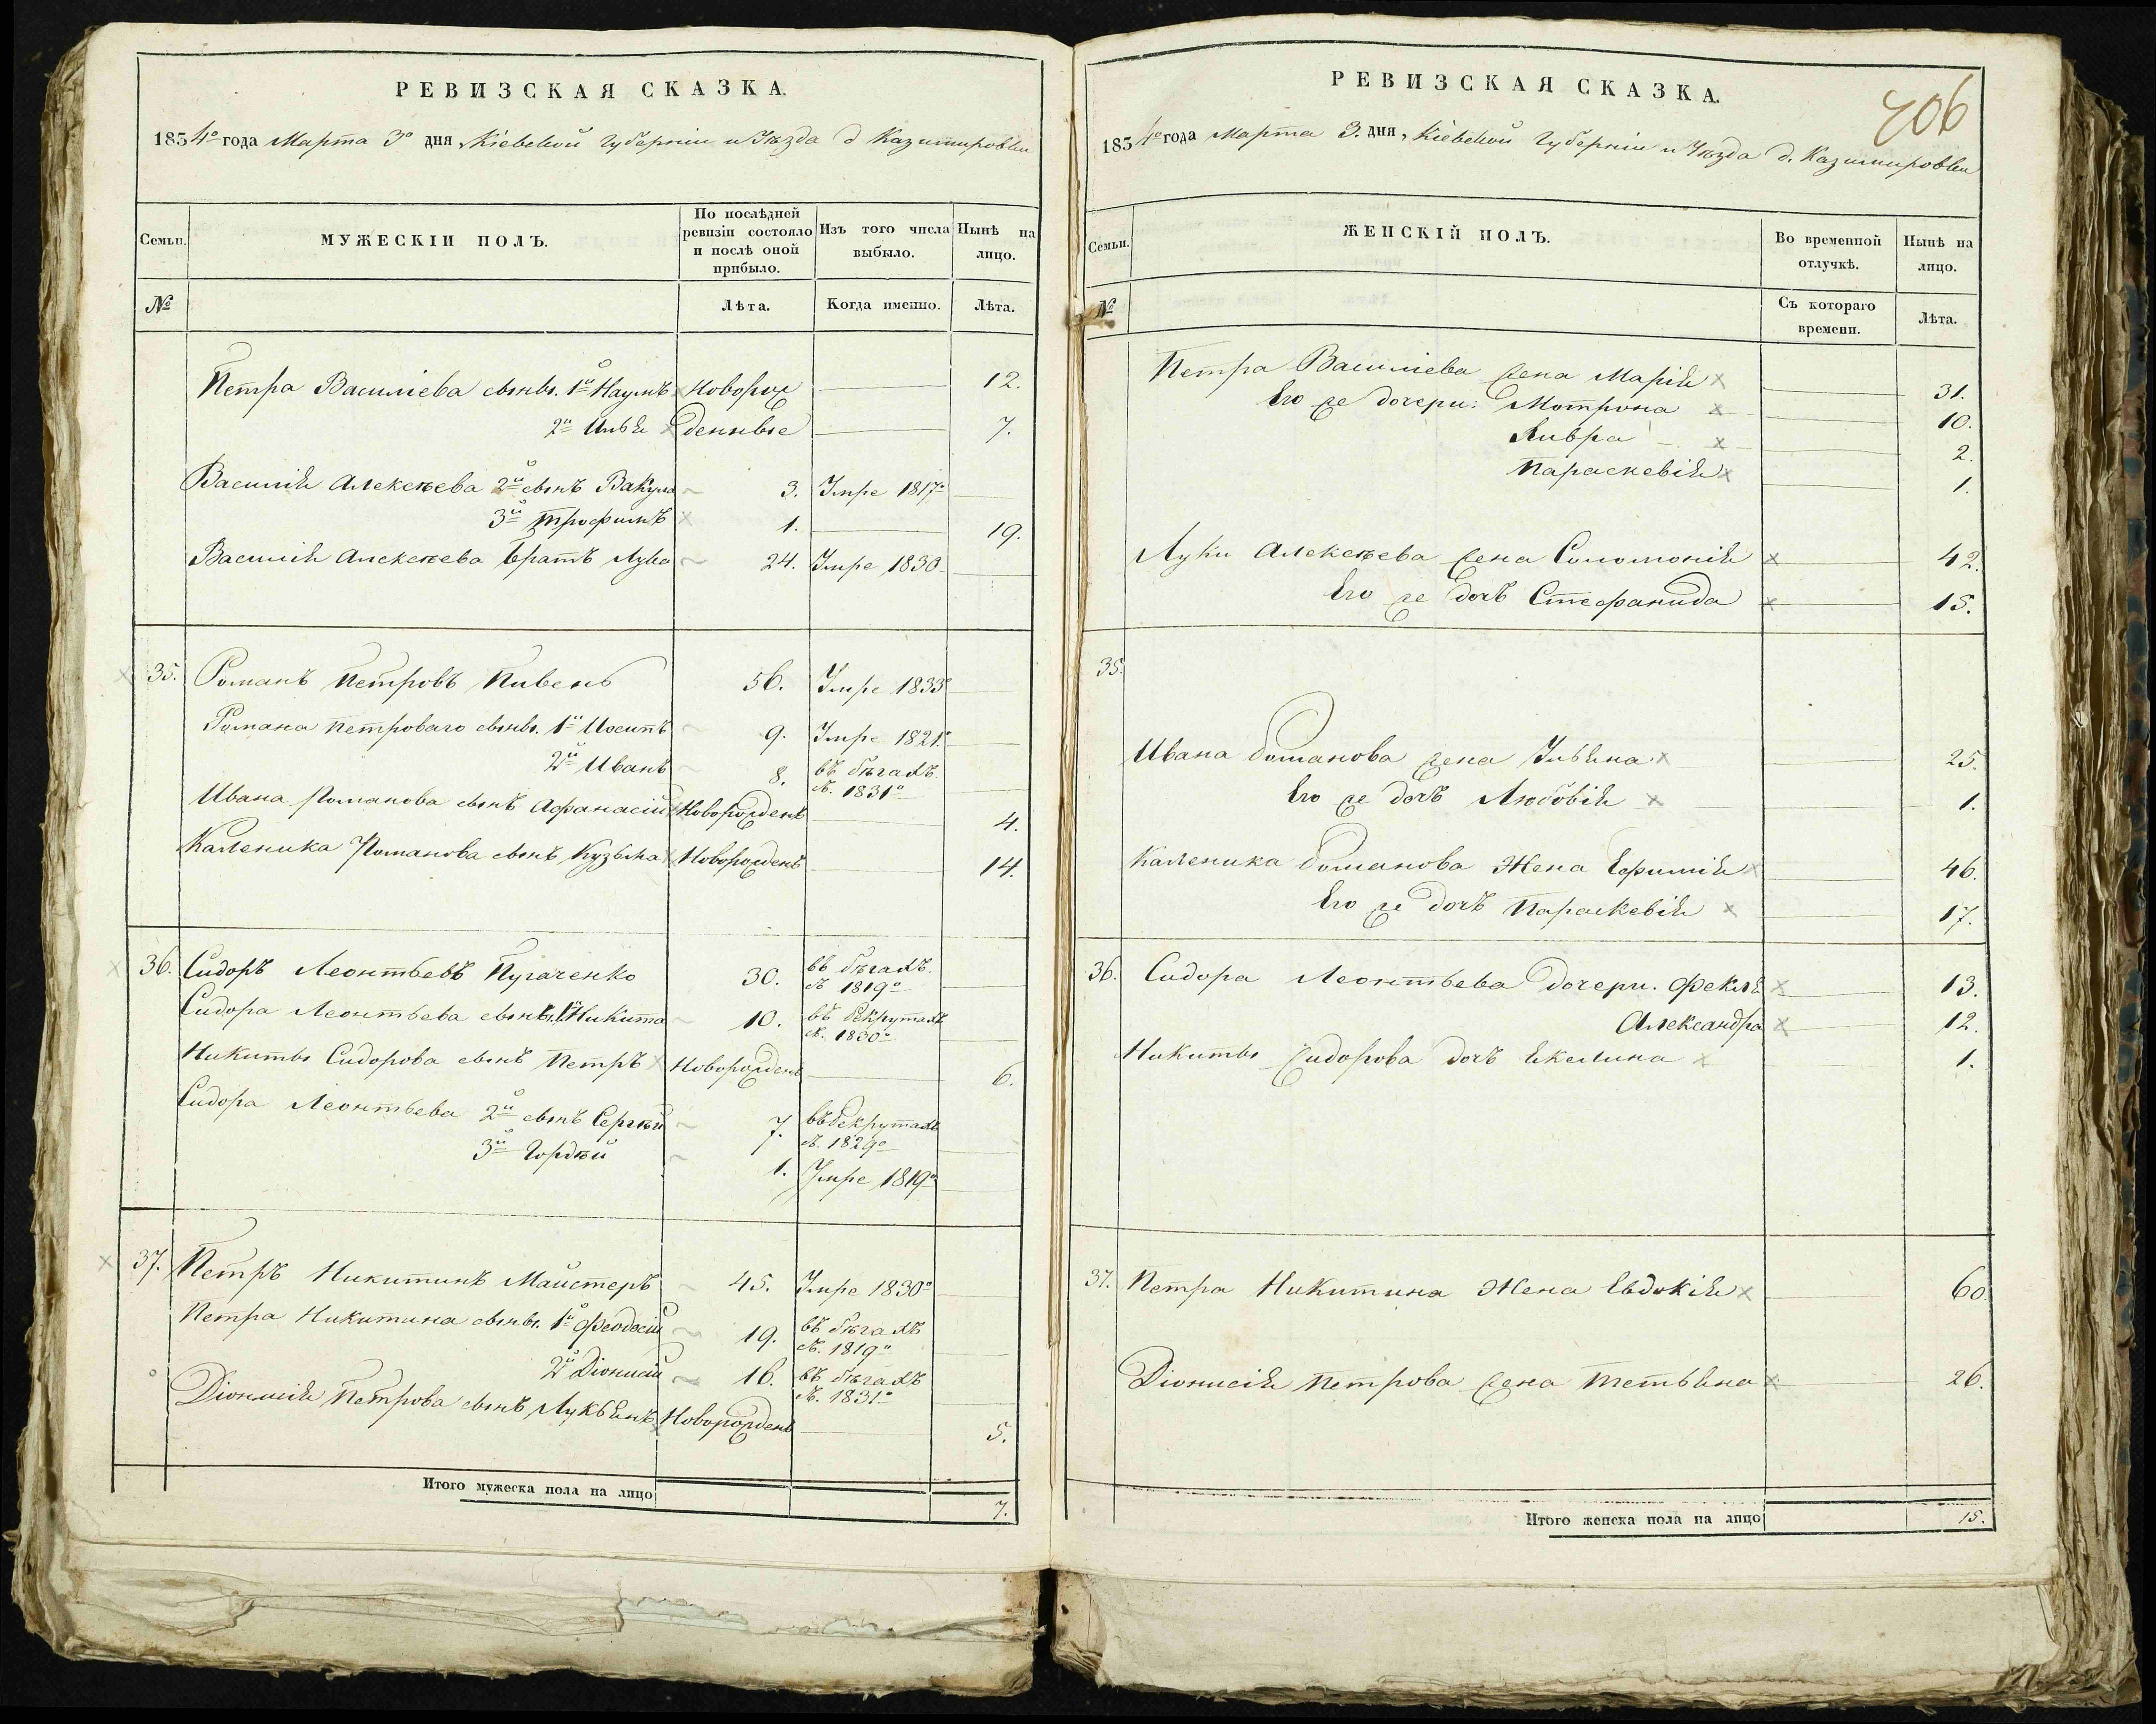 РЕВИЗСКАЯ СКАЗКА.
1834го года Марта 3го дня, Кіевской Губерніи и Уѣзда д Казимировки
Семьи.
МУЖЕСКІИ ПОЛЪ.
По послѣдней ревизіи состояло и послѣ оной прибыло.
Изъ того числа выбыло.
Нынѣ на лицо.
№
Лѣта.
Когда именно.
Лѣта.
Петра Василіева сыны. 1й Наумъ Новорож 12.
2й Илья денные 7.
Василія Алексѣева 2й сынъ Вакула 3. Умре 1817го
3й Трофимъ 1. 19.
Василія Алексѣева братъ Лука 24. Умре 1830
35. Романъ Петровъ Пивень 56. Умре 1833го
Романа Петроваго сыны. 1й Иосипъ 9. Умре 1821го
2й Иванъ 8. въ бѣгахъ
съ. 1831го
Ивана Романова сынъ Афанасій Новорожденъ 4.
Каленика Романова сынъ Кузьма Новорожденъ 14.
36. Сидоръ Леонтьевъ Пугаченко 30. въ бѣгахъ.
съ 1819го
Сидора Леонтьева сынъ 1й Никита 10. въ рекрутахъ
съ. 1830го
Никиты Сидорова сынъ Петръ Новорожденъ 6.
Сидора Леонтьева 2й сынъ Сергѣй 7. въ рекрутахъ
съ. 1829го
3й Гордѣй 1. Умре 1819го
37. Петръ Никитинъ Майстеръ 45. Умре 1830го
Петра Никитина сыны. 1й Феодосій 19. въ бѣгахъ
съ. 1819го
2й Діонисій 16. въ бѣгахъ
съ. 1831го
Діонисія Петрова сынъ Лукьянъ Новорожденъ 5.
Итого мужеска пола на лицо 7.
РЕВИЗСКАЯ СКАЗКА.
406
1834го года Марта 3. дня, Кіевской Губерніи и Уѣзда д. Казимировки
Семьи.
ЖЕНСКІЙ ПОЛЪ.
Во временной отлучкѣ.
Нынѣ на лицо.
№
Съ котораго времени.
Лѣта.
Петра Василіева жена Марія 31.
Его же дочери: Мотрона 10.
2.
Параскевія 1.
Луки Алексѣева жена Соломонія 42.
Его же дочь Стефанида 15.
35.
Ивана Романова жена Ульяна 25.
Его же дочь Любовія 1.
Каленика Романова Жена Ефимія 46.
Его же дочь Параскевія 17.
36. Сидора Леонтьева дочери. Фекля 13.
Александра 12.
Никиты Сидорова дочь Екилина 1.
37. Петра Никитина Жена Евдокія 60.
Діонисія Петрова жена Тетьяна 26.
Итого женска пола на лицо 15.